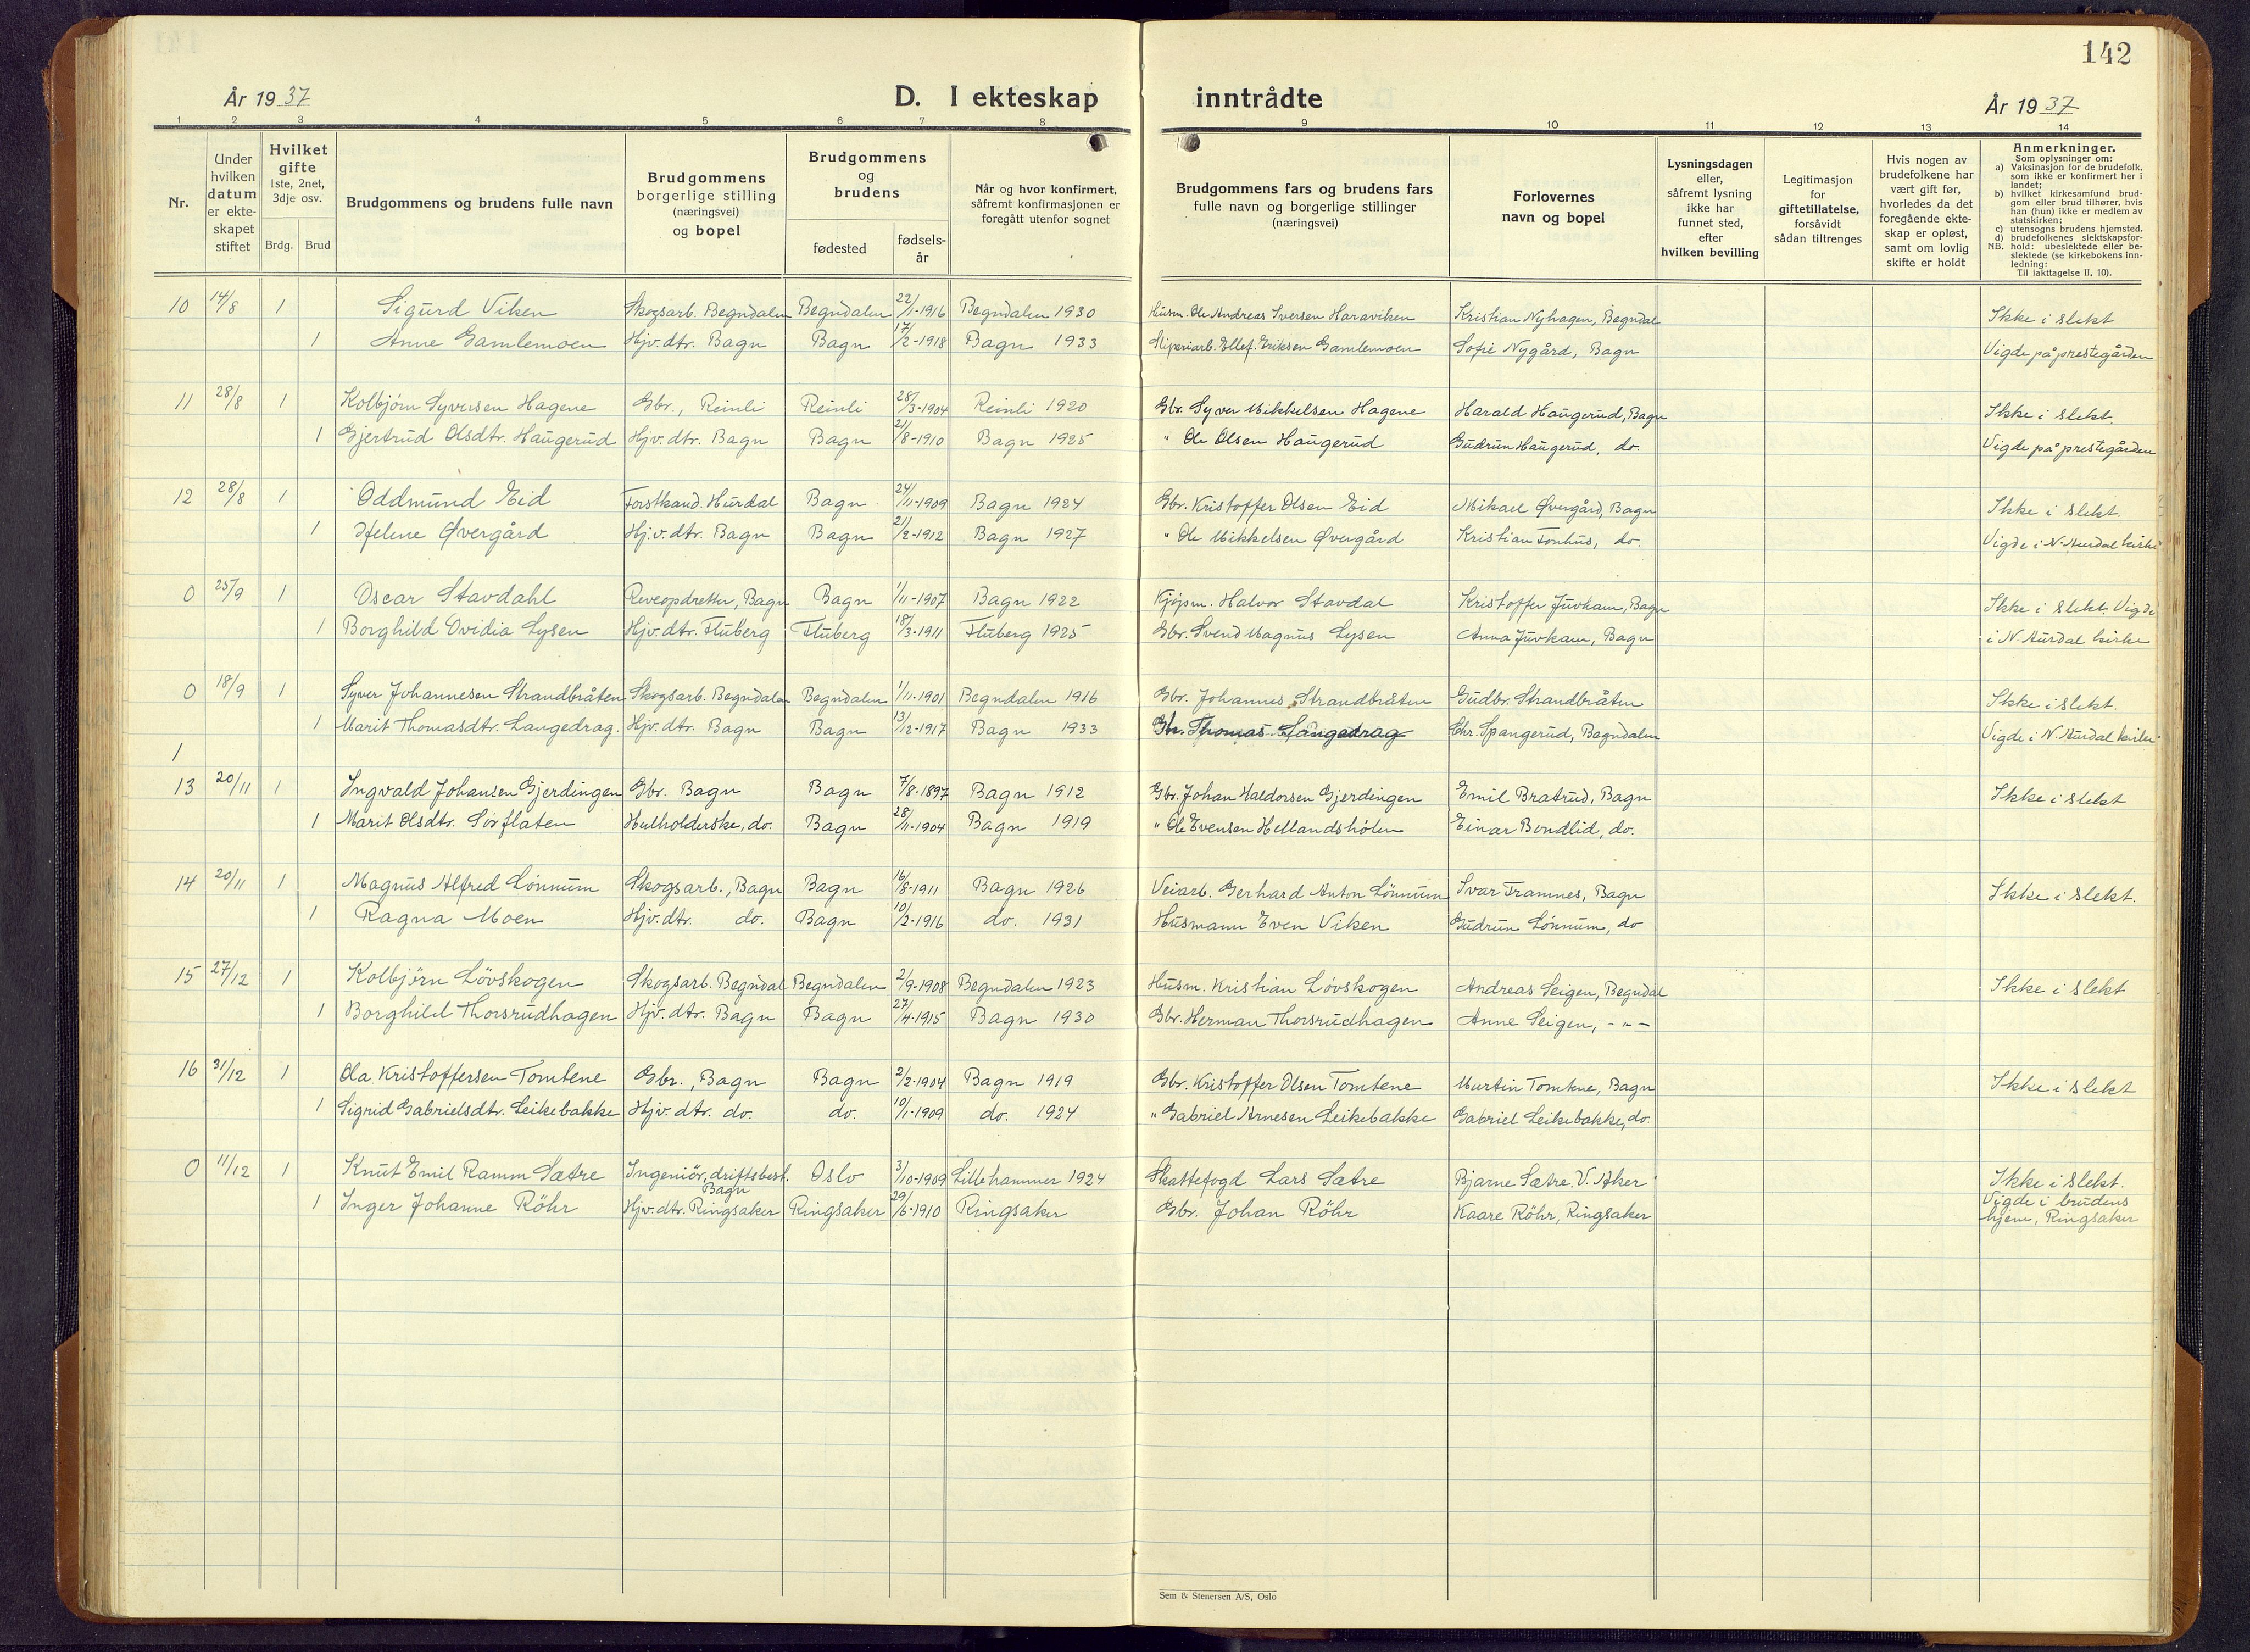 142
År 19 37
D. I ekteskap
inntrådte
År 19 37
1 2 3 4 5 6 7 8 9 10 11 12 13 14
Nr.
Under
hvilken
datum
er ekte-
skapet
stiftet
Hvilket
gifte
1ste, 2net,
3dje osv.
Brdg. Brud
Brudgommens og brudens fulle navn
Brudgommens
borgerlige stilling
(næringsvei)
og bopel
Brudgommens
og
brudens
fødested
fødsels-
år
Når og hvor konfirmert,
såfremt konfirmasjonen er
foregått utenfor sognet
Brudgommens fars og brudens fars
fulle navn og borgerlige stillinger
(næringsvei)
Forlovernes
navn og bopel
Lysningsdagen
eller,
såfremt lysning
ikke har
funnet sted,
efter
hvilken bevilling
Legitimasjon
for
giftetillatelse,
forsåvidt
sådan tiltrenges
Hvis nogen av
brudefolkene har
vært gift før,
hvorledes da det
foregående ekte-
skap er opløst,
samt om lovlig
skifte er holdt
Anmerkninger.
Som oplysninger om:
a) Vaksinasjon for de brudefolk,
som ikke er konfirmert her i
landet;
b) hvilket kirkesamfund brud-
gom eller brud tilhører, hvis
han (hun) ikke er medlem av
statskirken;
c) utensogns brudens hjemsted.
d) brudefolkenes slektskapsfor-
NB. hold: ubeslektede eller be-
slektede (se kirkebokens inn-
ledning:
Til iakttagelse II. 10).
10 14/8 1 Sigurd Viken Skogsarb. Begndalen Begndalen 22/1-1916 Begndalen 1930 Husm. Ole Andreas Iversen Haraviken Kristian Nyhagen, Begndal Ikke i slekt
1 Anne Gamlemoen Hjv. dtr. Bagn Bagn 17/2-1918 Bagn 1933 Sliperiarb. Ellef. Eriksen Gamlemoen Sofie Nygård, Bagn Vigde på prestegården
11 28/8 1 Kolbjørn Syversen Hagene Gbr., Reinli Reinli 28/3-1904 Reinli 1920 Gbr. Syver Mikkelsen Hagene Harald Haugerud, Bagn Ikke i slekt.
1 Gjertrud Olsdtr. Haugerud Hjv. dtr. Bagn Bagn 21/8-1910 Bagn 1925 " Ole Olsen Haugerud Gudrun Haugerud, do. Vigde på prestegården
12 28/8 1 Oddmund Eid Forstkand. Hurdal Bagn 24/11-1909 Bagn 1924 Gbr. Kristoffer Olsen Eid Mikael Øvergård, Bagn Ikke i slekt.
1 Helene Øvergård Hj.v. dtr. Bagn Bagn 21/2-1912 Bagn 1927 " Ole Mikkelsen Øvergård Kristian Fonhus, do. Vigde i N. Aurdal kirke
0 25/9 1 Oscar Stavdahl Reveopdretter, Bagn Bagn 1/11-1907 Bagn 1922 Kjøpm. Halvor Stavdal Kristoffer Juvkam, Bagn Ikke i slekt. Vigde
1 Borghild Ovidia Lysen Hjv. dtr. Fluberg Fluberg 18/3-1911 Fluberg 1925 Gbr. Svend Magnus Lysen Anna Juvkam, Bagn i N. Aurdal kirke
0 18/9 1 Syver Johannesen Strandbråten Skogsarb. Begndalen Begndalen 1/11-1901 Begndalen 1916 Gbr. Johannes Strandbråten Gudbr. Strandbråten Ikke i slekt.
1 Marit Thomasdtr. Langedrag. Hjv. dtr. Bagn Bagn 13/12-1917 Bagn 1933 Gbr. Thomas Langedrag Chr. Spangerud, Bagndalen Vigde i N. Aurdal kirke
1
13 20/11 1 Ingvald Johansen Gjerdingen Gbr. Bagn Bagn 7/8-1897 Bagn 1912 Gbr. Johan Haldorsen Gjerdingen Emil Bratrud, Bagn Ikke i slekt
1 Marit Olsdtr. Sørflaten Hulholderske, do. Bagn 28/11-1904 Bagn 1919 " Ole Evensen Hellandshølen Einar Bondlid, do.
14 20/11 1 Magnus Alfred Lönnum Skogsarb., Bagn Bagn 16/8-1911 Bagn 1926 Veiarb. Gerhard Anton Lönnum Ivar Framnes, Bagn Ikke i slekt.
1 Ragna Moen Hjv. dtr. do. Bagn 10/2-1916 do. 1931 Husmann Even Viken Gudrun Lönnum, do
15 27/12 1 Kolbjörn Lövskogen Skogsarb. Begndal Begndalen 2/9-1908 Begndalen 1923 Husm. Kristian Lövskogen Andreas Leigen, Begndal Ikke i slekt
1 Borghild Thorsrudhagen Hjv. dtr. Bagn Bagn 27/4-1915 Bagn 1930 Gbr. Herman Thorsrudhagen Anne Leigen, - " -
16 31/12 1 Ola Kristoffersen Tomtene Gbr., Bagn Bagn 2/2-1904 Bagn 1919 Gbr. Kristoffer Olsen Tomtene Martin Tomtene, Bagn Ikke i slekt
1 Sigrid Gabrielsdtr. Leikebakke Hjv. dtr. do. do. 10/1-1909 do. 1924 " Gabriel Arnesen Leikebakke Gabriel Leikebakke, do.
0 11/12 1 Knut Emil Ramm Sætre Ingeniör, driftsbest. Oslo 3/10-1909 Lillehammer 1924 Skattefogd Lars Sætre Bjarne Sætre. V. Aker Ikke i slekt.
Bagn
1 Inger Johanne Röhr Hjv. dtr. Ringsaker Ringsaker 29/6-1910 Ringsaker Gbr. Johan Röhr Kaare Röhr, Ringsaker Vigde i brudens
hjem, Ringsaker
Sem & Stenersen A/S, Oslo